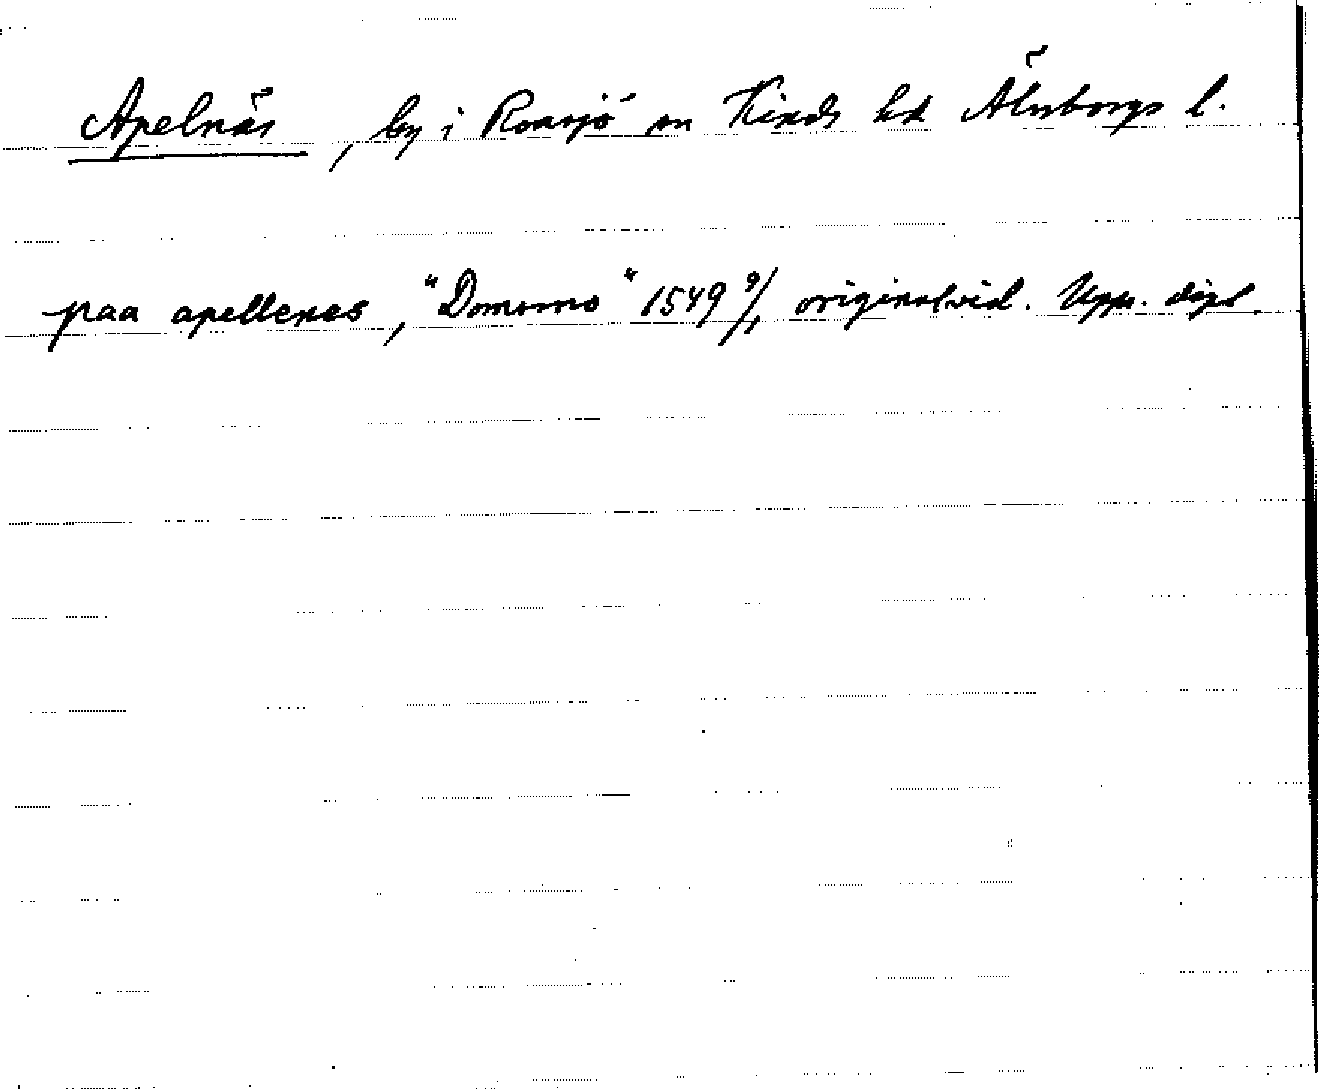 Apelnäs, by i Roasjö sn Kinds hd Älvsborgs l.
paa apellenas, "Domomo" 1549 9/1 originalvid. Upps. dipl.